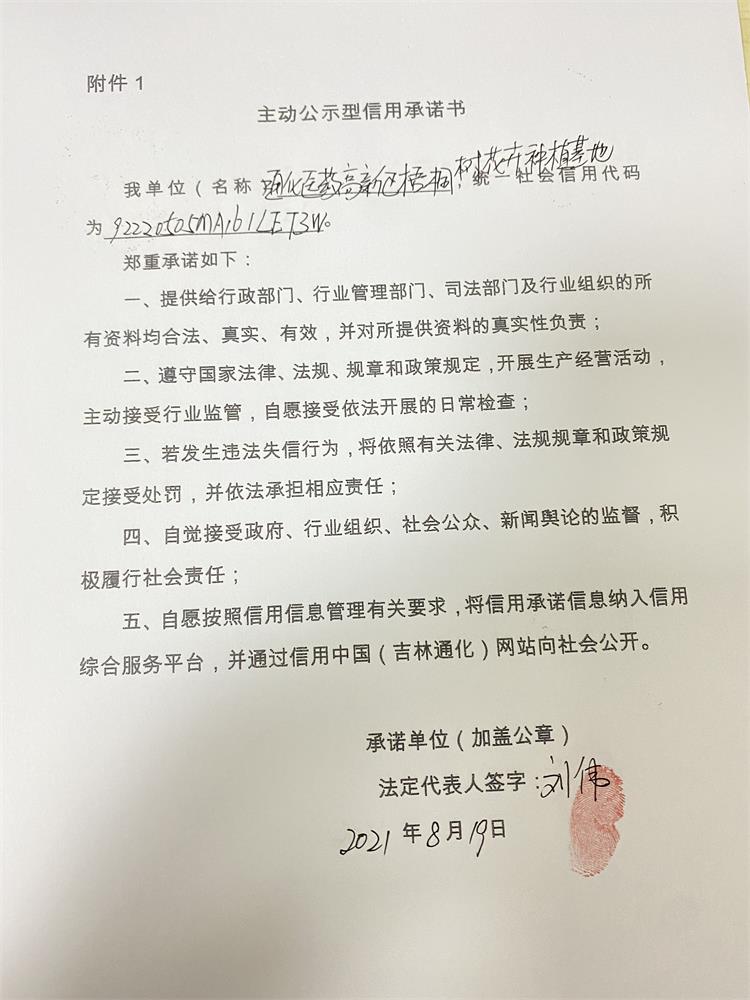 附件1
主动公示型信用承诺书
我单位（名称：通化医药高新区梧桐树花卉种植基地，统一社会信用代码
为92220505MA161LET3W。
郑重承诺如下：
一、提供给行政部门、行业管理部门、司法部门及行业组织的所
有资料均合法、真实、有效，并对所提供资料的真实性负责；
二、遵守国家法律、法规、规章和政策规定，开展生产经营活动，
主动接受行业监管，自愿接受依法开展的日常检查；
三、若发生违法失信行为，将依照有关法律、法规规章和政策规
定接受处罚，并依法承担相应责任；
四、自觉接受政府、行业组织、社会公众、新闻舆论的监督，积
极履行社会责任；
五、自愿按照信用信息管理有关要求，将信用承诺信息纳入信用
综合服务平台，并通过信用中国（吉林通化）网站向社会公开。
承诺单位（加盖公章）
法定代表人签字：刘伟
2021年8月19日